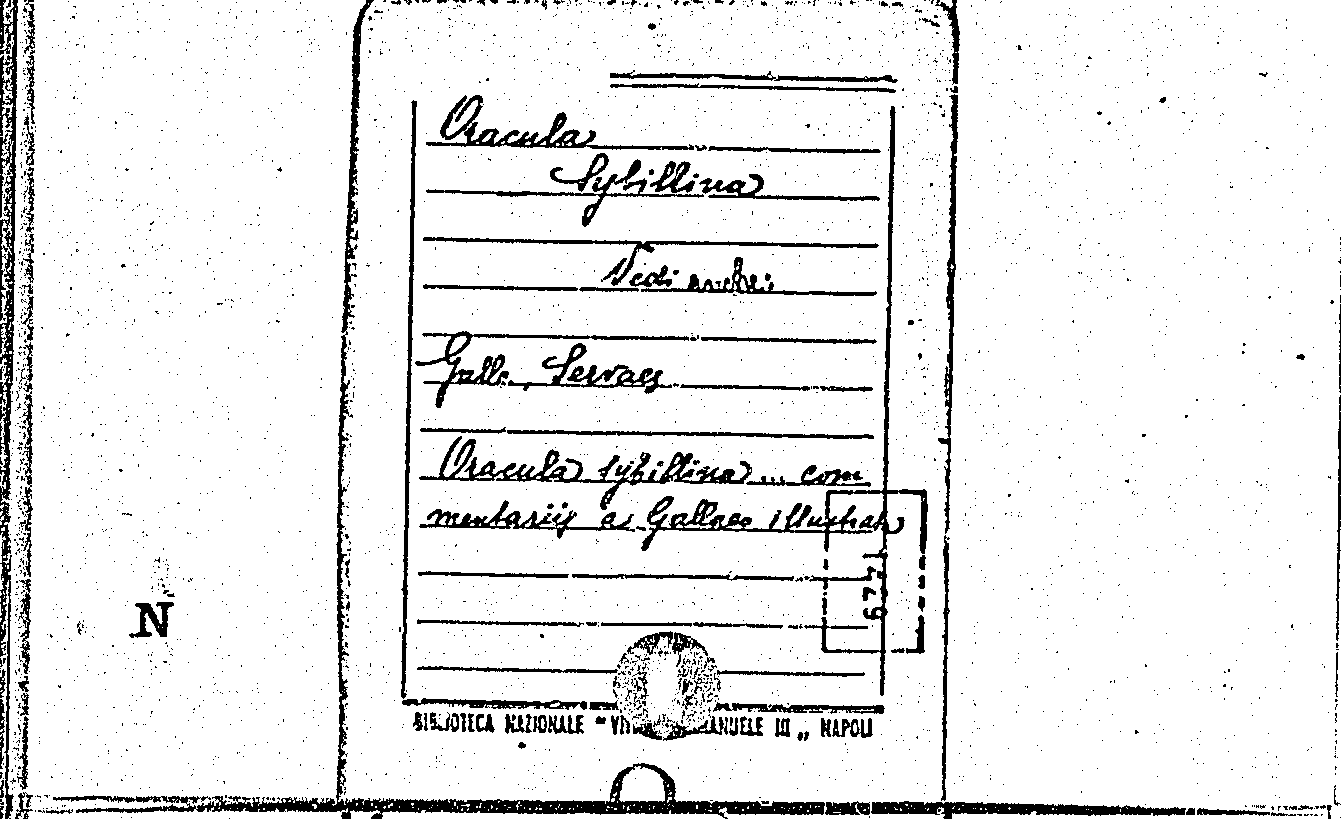 Oracula
Sybillina
Vedi anche:
Galle, Servaes
Oracula sybillina ... com
mentariis a Gallaeo illustrata
6771
N
BIBLIOTECA NAZIONALE "VITT MANUELE III„ NAPOLI